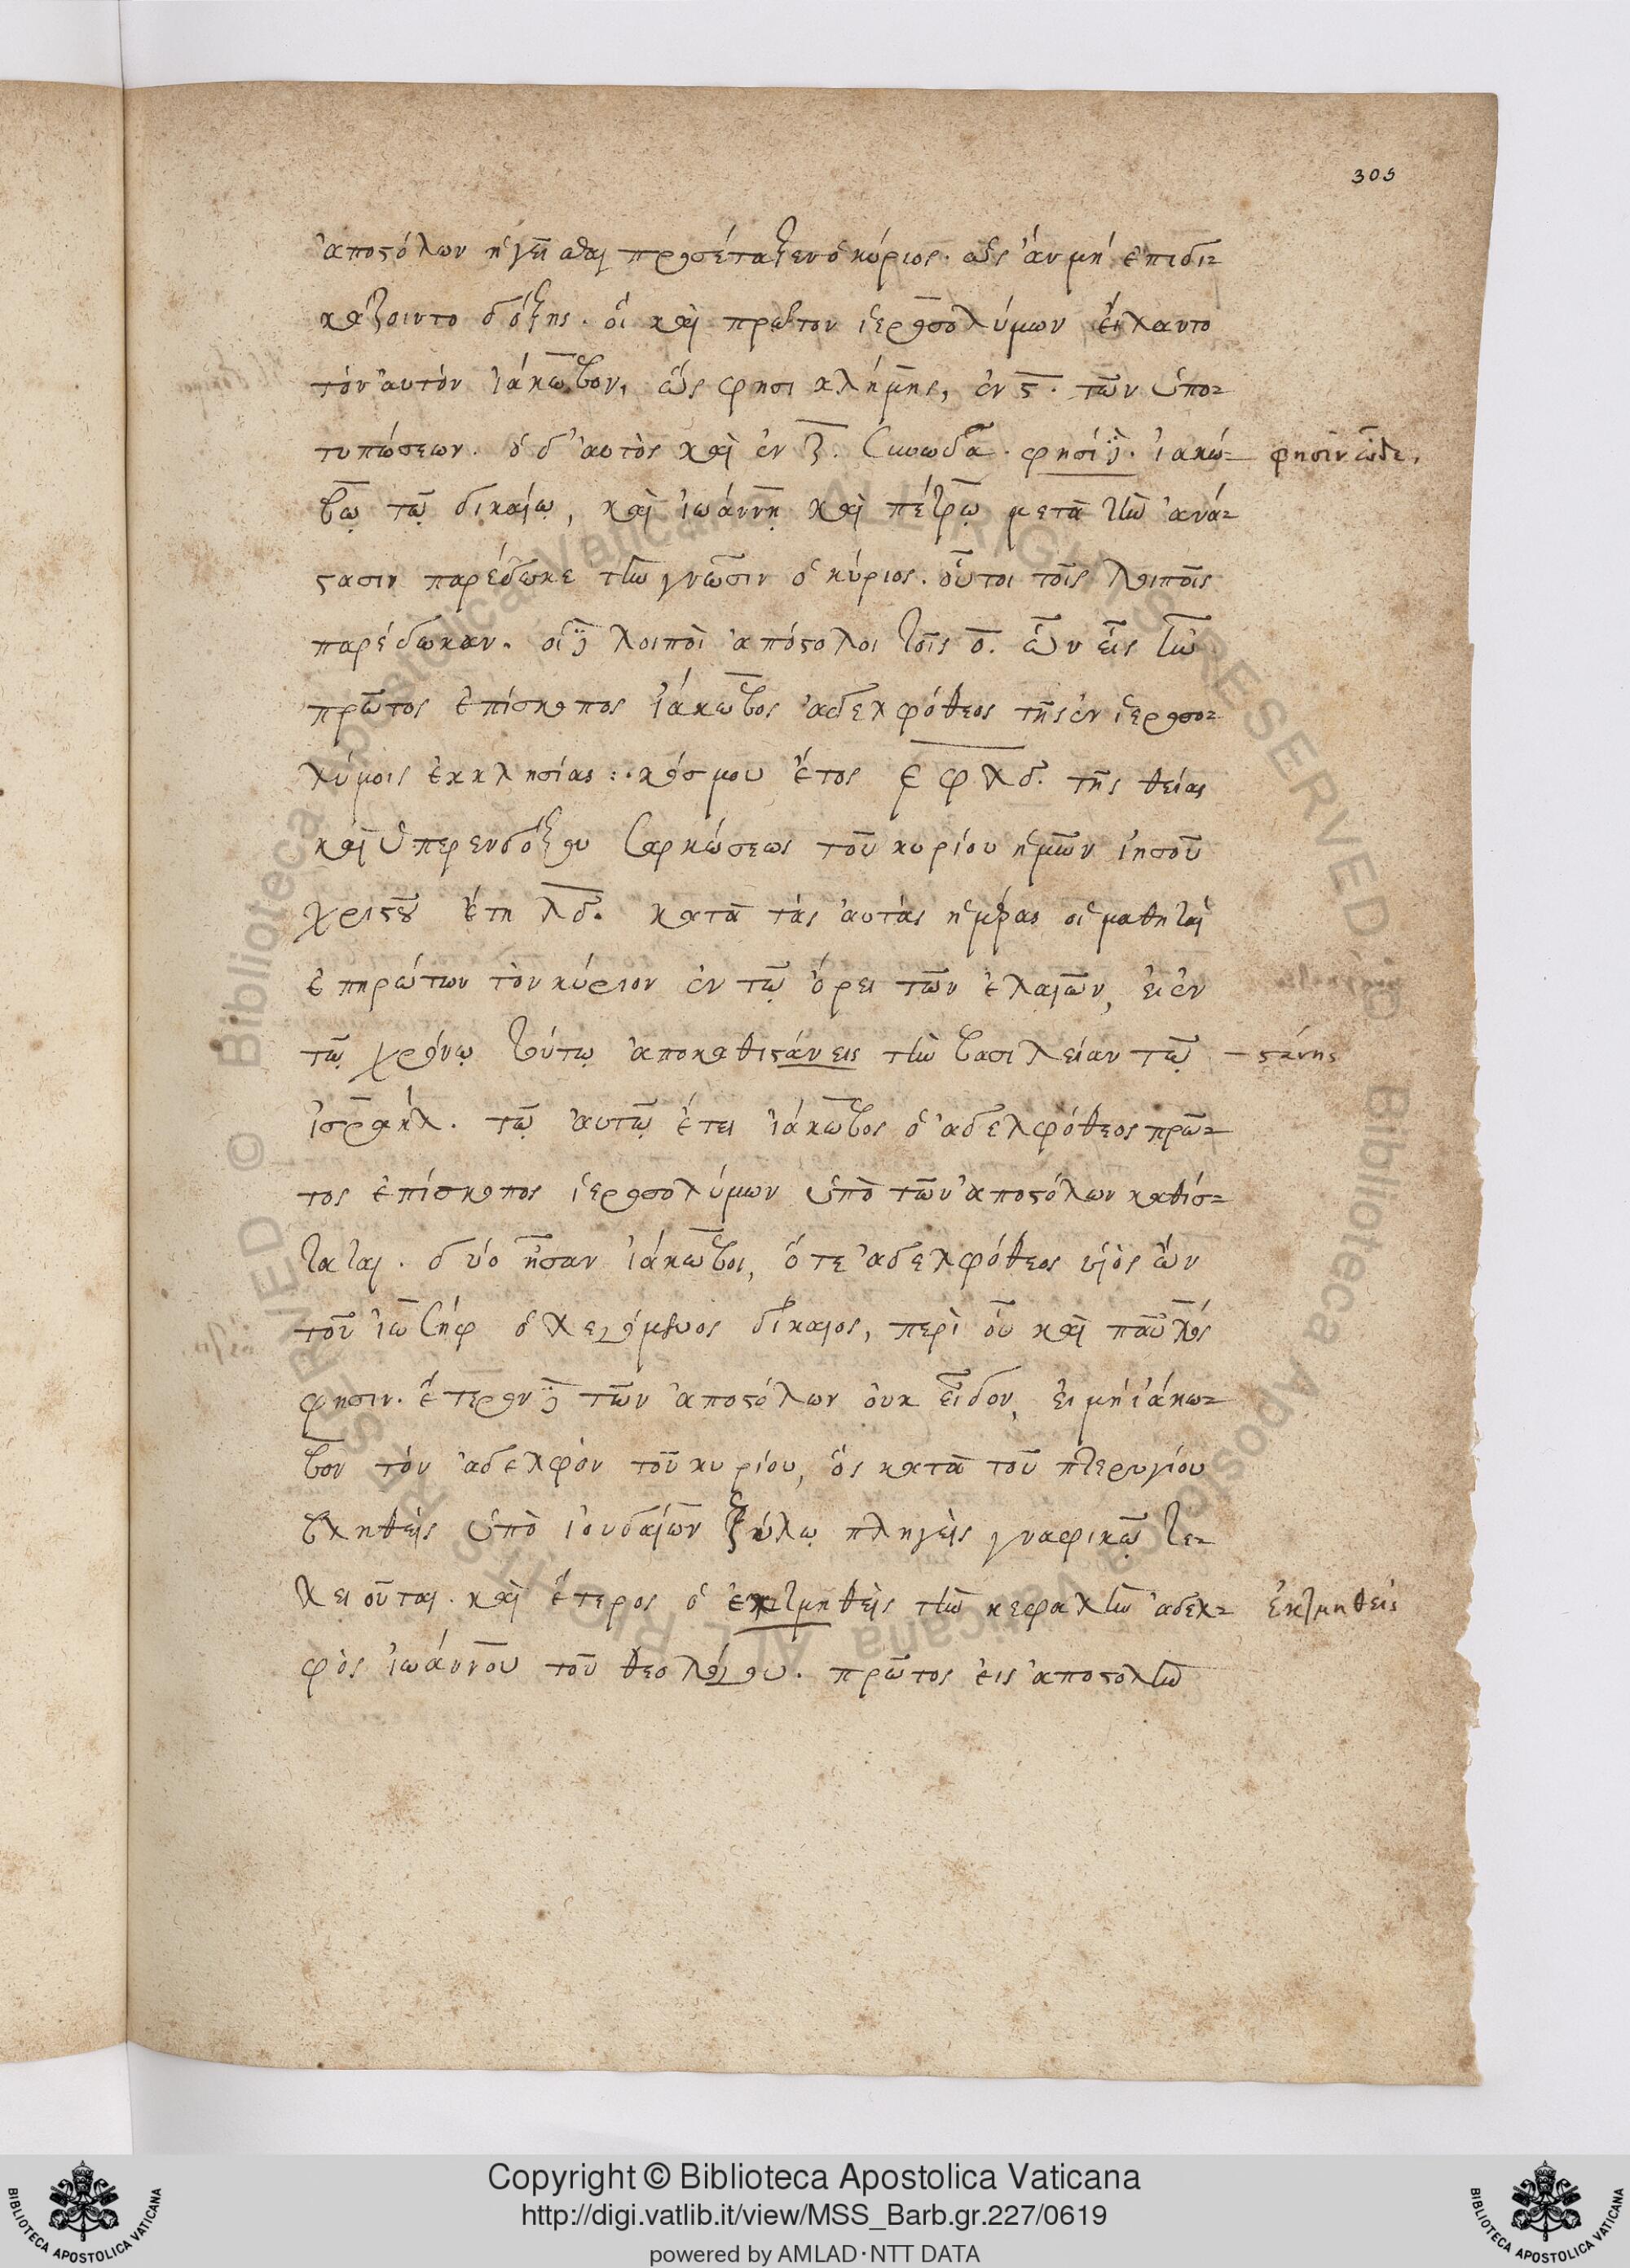 303
ἀποστόλων ἡγεῖσθαι προσέταξεν ὁ κύριος. ὡς ἂν μὴ ἐπιδι-
κάζοιντο δόξης. οἳ καὶ πρῶτον ἱεροσολύμων εἵλαντο
τὸν αὐτὸν ἰάκωβον, ὥς φησι κλήμης, ἐν ς. τῶν ὑπο-
τυπώσεων. ὁ δ' αὐτὸς καὶ ἐν ζ. φησί δὲ. ἰακώ-
φησὶν ὧδε.
βῳ τῷ δικαίῳ, καὶ ἰωάννῃ καὶ πέτρῳ μετὰ τὴν ἀνά-
στασιν παρέδωκε τὴν γνῶσιν ὁ κύριος. οὗτοι τοῖς λοιποῖς
παρέδωκαν. οἱ δὲ λοιποὶ ἀπόστολοι τοῖς ο. ὧν εἷς ἦν
πρῶτος ἐπίσκοπος ἰάκωβος ἀδελφόθεος τῆς ἐν ἱεροσο-
λύμοις ἐκκλησίας :. κόσμου ἔτος ͵εφλδ. τῆς θείας
καὶ ὑπερενδόξου σαρκώσεως τοῦ κυρίου ἡμῶν ἰησοῦ
χριστοῦ ἔτη λδ. κατὰ τὰς αὐτὰς ἡμέρας οἱ μαθηταὶ
ἐπηρώτων τὸν κύριον ἐν τῷ ὄρει τῶν ἐλαιῶν, εἰ ἐν
τῷ χρόνῳ τούτῳ ἀποκαθιστάνεις τὴν βασιλείαν τῷ
- στάνης
ἰσραήλ. τῷ αὐτῷ ἔτει ἰάκωβος ὁ ἀδελφόθεος πρῶ-
τος ἐπίσκοπος ἱεροσολύμων ὑπὸ τῶν ἀποστόλων καθίσ-
ταται. δύο ἦσαν ἰάκωβοι, ὅ τε ἀδελφόθεος υἱὸς ὢν
τοῦ ἰωσὴφ ὁ λεγόμενος δίκαιος, περὶ οὗ καὶ παῦλός
φησιν. ἕτερον δὲ τῶν ἀποστόλων οὐκ εἶδον, εἰ μὴ ἰάκω-
βον τὸν ἀδελφὸν τοῦ κυρίου, ὃς κατὰ τοῦ πτερυγίου
βληθεὶς ὑπὸ ἰουδαίων ξύλῳ πληγεὶς γναφικῷ τε-
λειοῦται. καὶ ἕτερος ὁ ἐκτμηθεὶς τὴν κεφαλὴν ἀδελ-
ἐκτμηθείς
φὸς ἰωάννου τοῦ θεολόγου. πρῶτος εἰς ἀποστολὴν
Copyright © Biblioteca Apostolica Vaticana
http://digi.vatlib.it/view/MSS_Barb.gr.227/0619
powered by AMLAD·NTT DATA
BIBLIOTECA APOSTOLICA VATICANA
BIBLIOTECA APOSTOLICA VATICANA